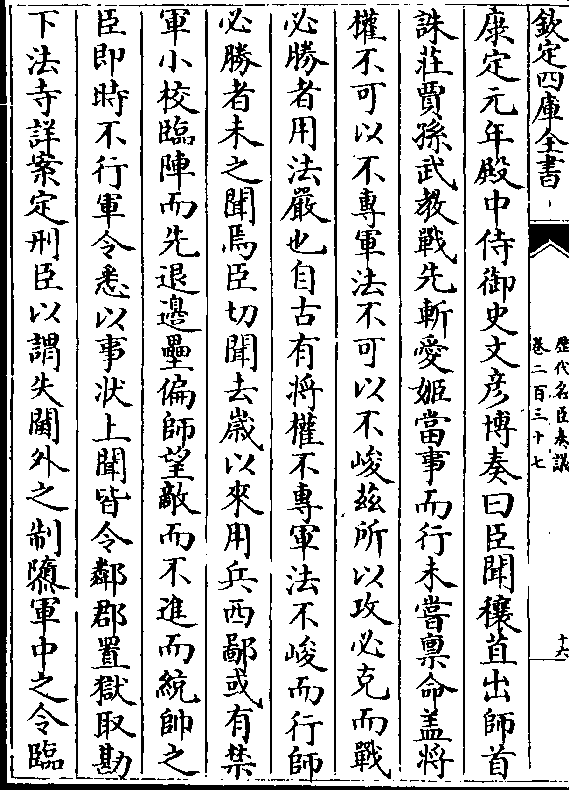 欽定四庫全書
歷代名臣奏議
卷二百三十七
十六
康定元年殿中侍御史文彦博奏曰臣聞穰苴出師首
誅莊賈孫武教戰先斬愛姬當事而行未嘗稟命盖將
權不可以不專軍法不可以不峻兹所以攻必克而戰
必勝者用法嚴也自古有將權不專軍法不峻而行師
必勝者未之聞焉臣切聞去嵗以來用兵西鄙或有禁
軍小校臨陣而先退邊壘偏師望敵而不進而統帥之
臣即時不行軍令悉以事狀上聞皆令鄰郡置獄取勘
下法寺詳案定刑臣以謂失閫外之制隳軍中之令臨